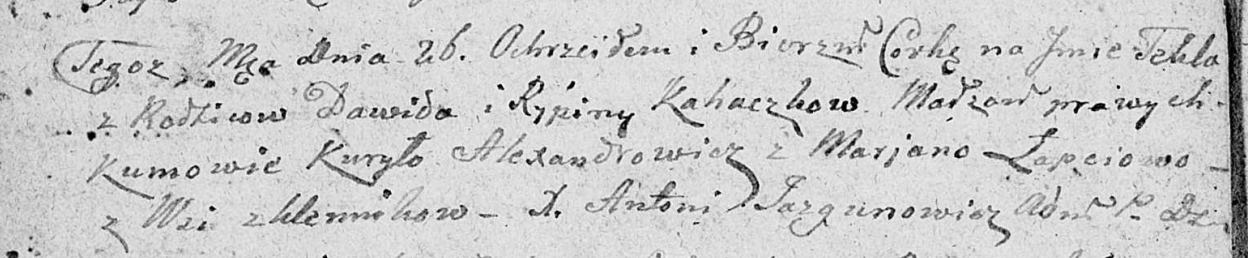 Tegoż, Mca dnia 26. Ochrzciłem i Bierzm Corkę na Jmie Tekla
z Rodzicow Dawida i Rypiny Kahaczkow Małżow prawych.
Kumowie Kuryło Alexandrowicz z Marjano Łapciowo –
z Wsi z klennikow – X. Antoni Jazgunowicz Adm P. Dz.